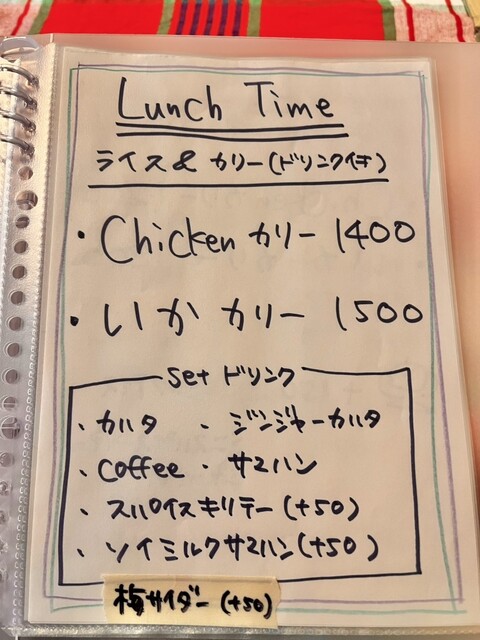 Lunch Time
ライス& カリー(ドリンク付)
・Chicken カリー 1400
・いか カリー 1500
set ドリンク
・カハタ ・ジンジャーカハタ
・coffee ・サマハン
・スパイスキリテー(+50)
・ソイミルクサマハン(+50)
梅サイダー(+50)